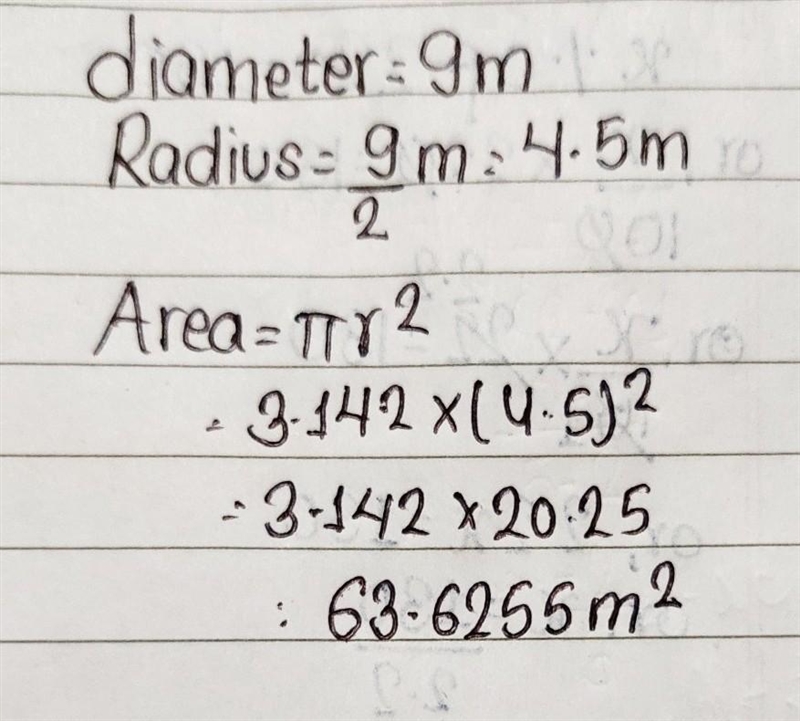 diameter = 9m
Radius = 9/2 m = 4.5m
Area = πr²
= 3.142 × (4.5)²
= 3.142 × 20.25
= 63.6255 m²